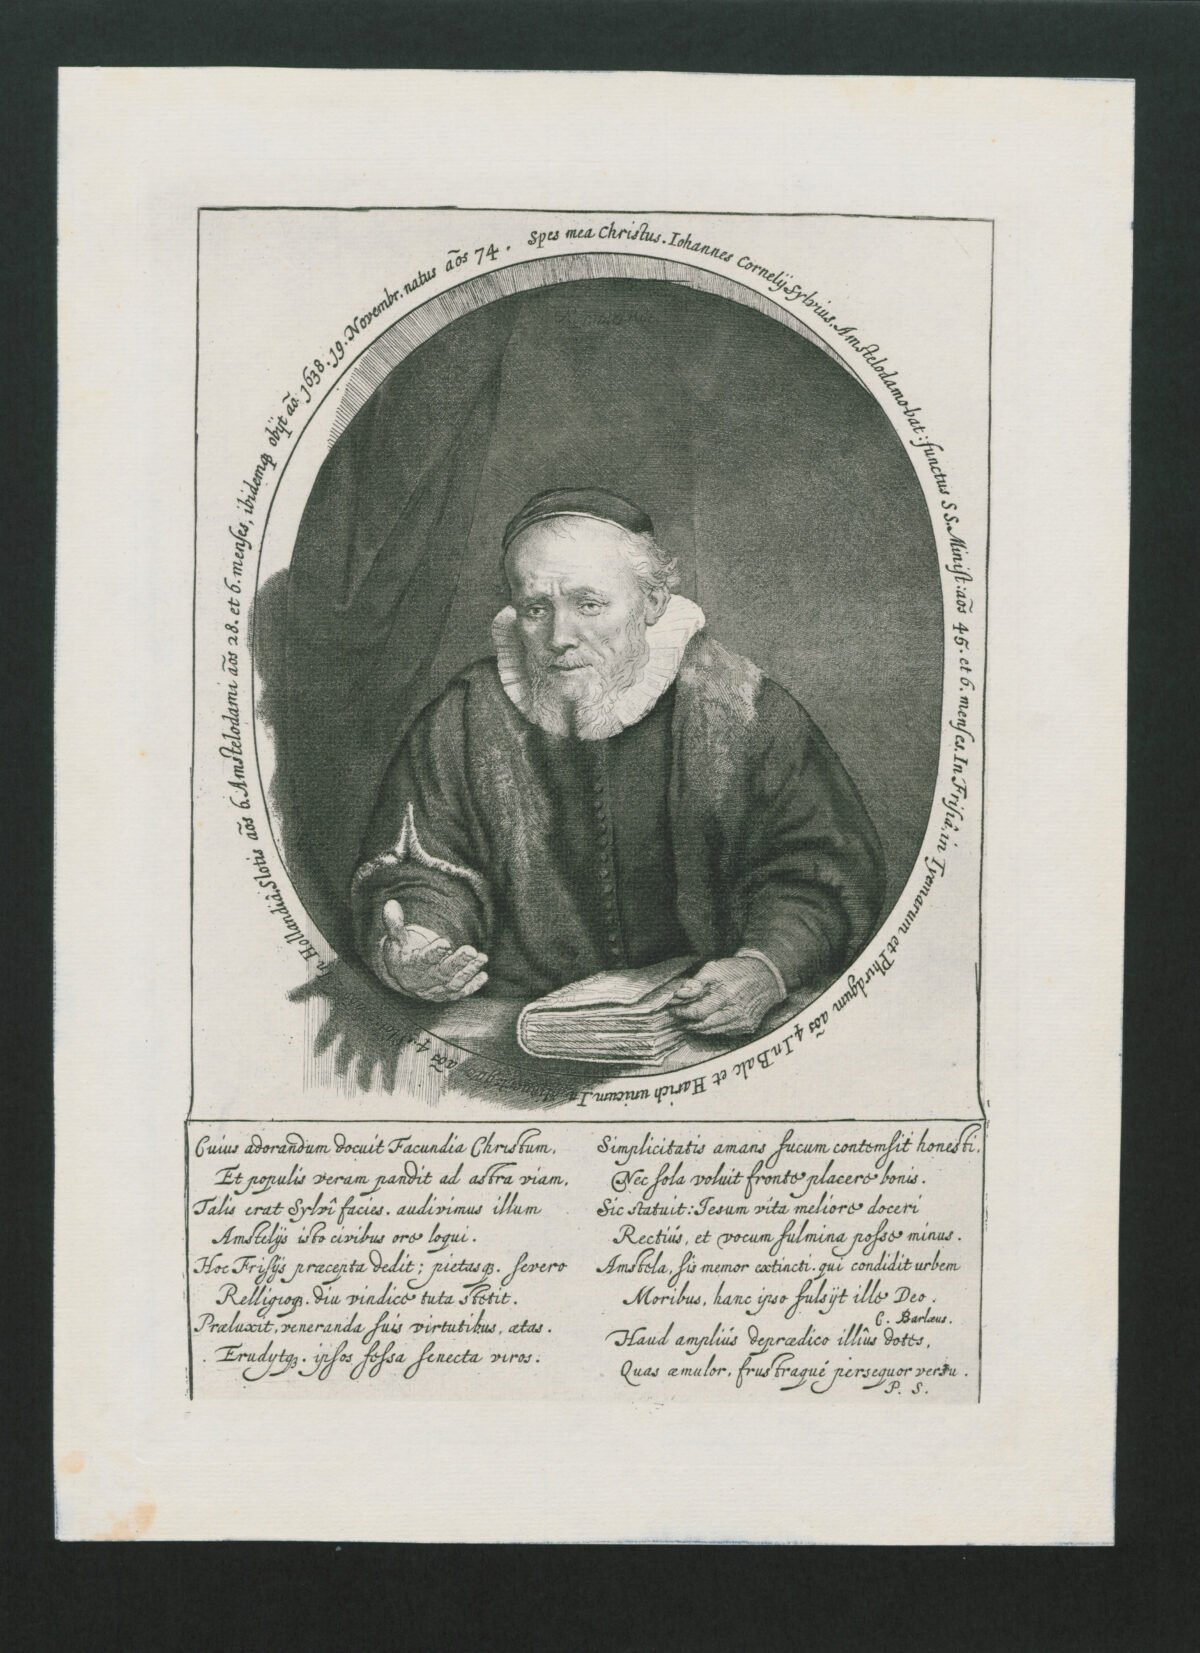 Spes mea Christus. Iohannes Cornelÿ Sylvius, Amstelodamo-bat: functus SS. Minist: aōs 45. et 6. menses. In Frisiâ, in Tyemarum et Phirdgum aōs 4. In Balc et Harich unicum. In aōs 4. In Hollandiâ, Slotis aōs 6. Amstelodami aōs 28. et 6. menses, ibidemqꝫ obÿt aō. 1638. 19. Novembr. natus aōs 74.
Cuius adorandum docuit Facundia Christum,
Et populis veram pandit ad astra viam,
Talis erat Sylvî facies. audivimus illum
Amstelÿs isto civibus ore loqui.
Hoc Frisÿs præcepta dedit; pietasqꝫ. severo
Relligioqꝫ. diu vindice tuta stetit.
Præluxit, veneranda suis virtutibus, ætas.
Erudytqꝫ. ipsos fessa senecta viros.
Simplicitatis amans fucum contemsit honesti,
Nec sola voluit fronte placere bonis.
Sic statuit: Jesum vita meliore doceri
Rectiús, et vocum fulmina posse minus.
Amstela, sis memor extincti. qui condidit urbem
Moribus, hanc ipso fulsÿt ille Deo.
C. Barlæus.
Haud ampliús deprædico illîus dotes,
Quas æmulor, frustraqué persequor versu.
P. S.